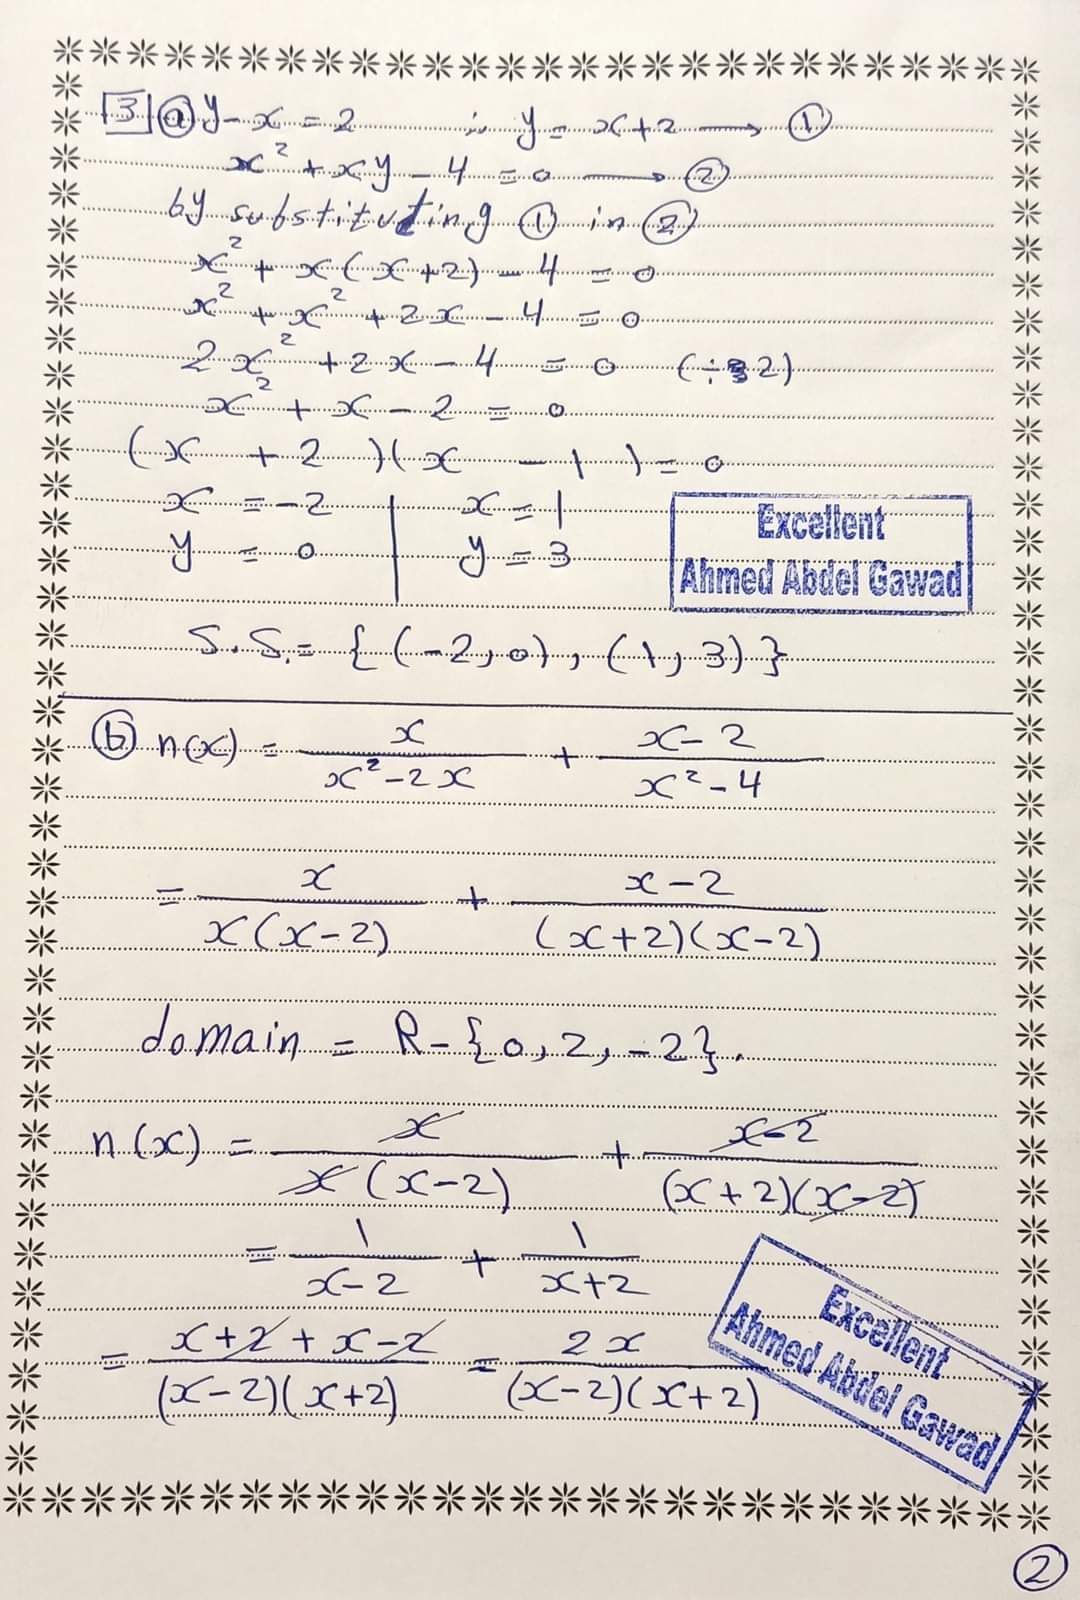 3 a y - x = 2 ∴ y = x+2 → 1
x² + xy - 4 = 0 → 2
by substituting 1 in 2
x² + x(x+2) - 4 = 0
x² + x² + 2x - 4 = 0
2x² + 2x - 4 = 0 (÷ 2)
x² + x - 2 = 0
(x + 2)(x - 1) = 0
x = -2 | x = 1
y = 0 | y = 3
Excellent
Ahmed Abdel Gawad
S.S. = {(-2,0), (1,3)}
b n(x) = x / (x²-2x) + (x-2) / (x²-4)
= x / (x(x-2)) + (x-2) / ((x+2)(x-2))
domain = R-{0, 2, -2}.
n(x) = x / (x(x-2)) + (x-2) / ((x+2)(x-2))
= 1 / (x-2) + 1 / (x+2)
= (x+2+x-2) / ((x-2)(x+2)) = 2x / ((x-2)(x+2))
Excellent
Ahmed Abdel Gawad
2